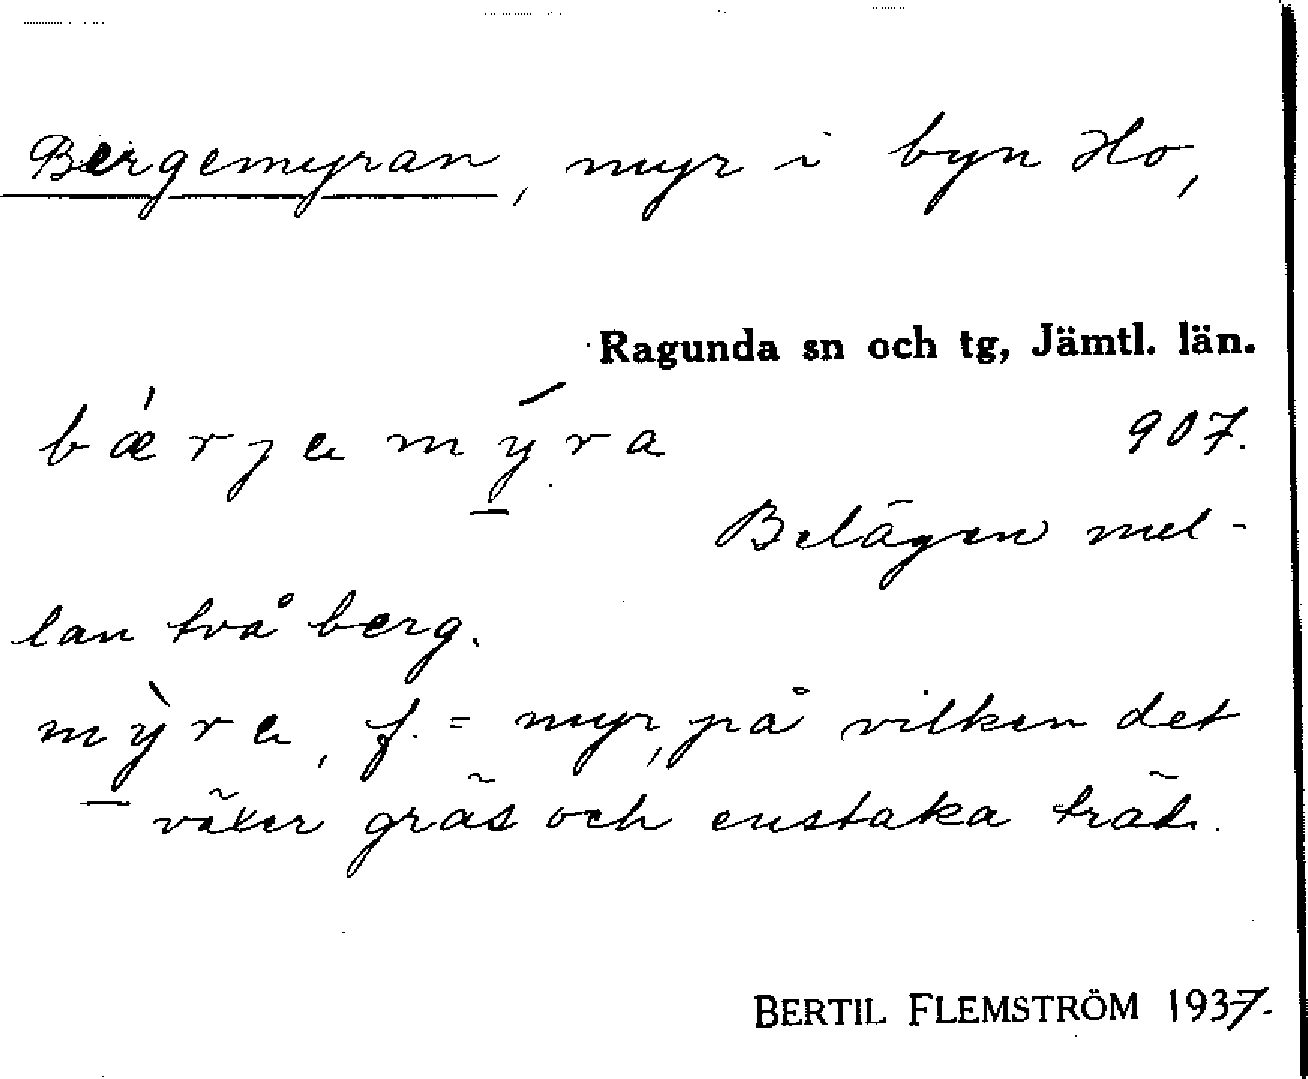 Bergemyran, myr i byn Ho,
Ragunda sn och tg, Jämtl. län.
bǽrjemýra 907.
Belägen mel-
lan två berg.
mỳre, f. = myr, på vilken det
växer gräs och enstaka träd.
BERTIL FLEMSTRÖM 1937.